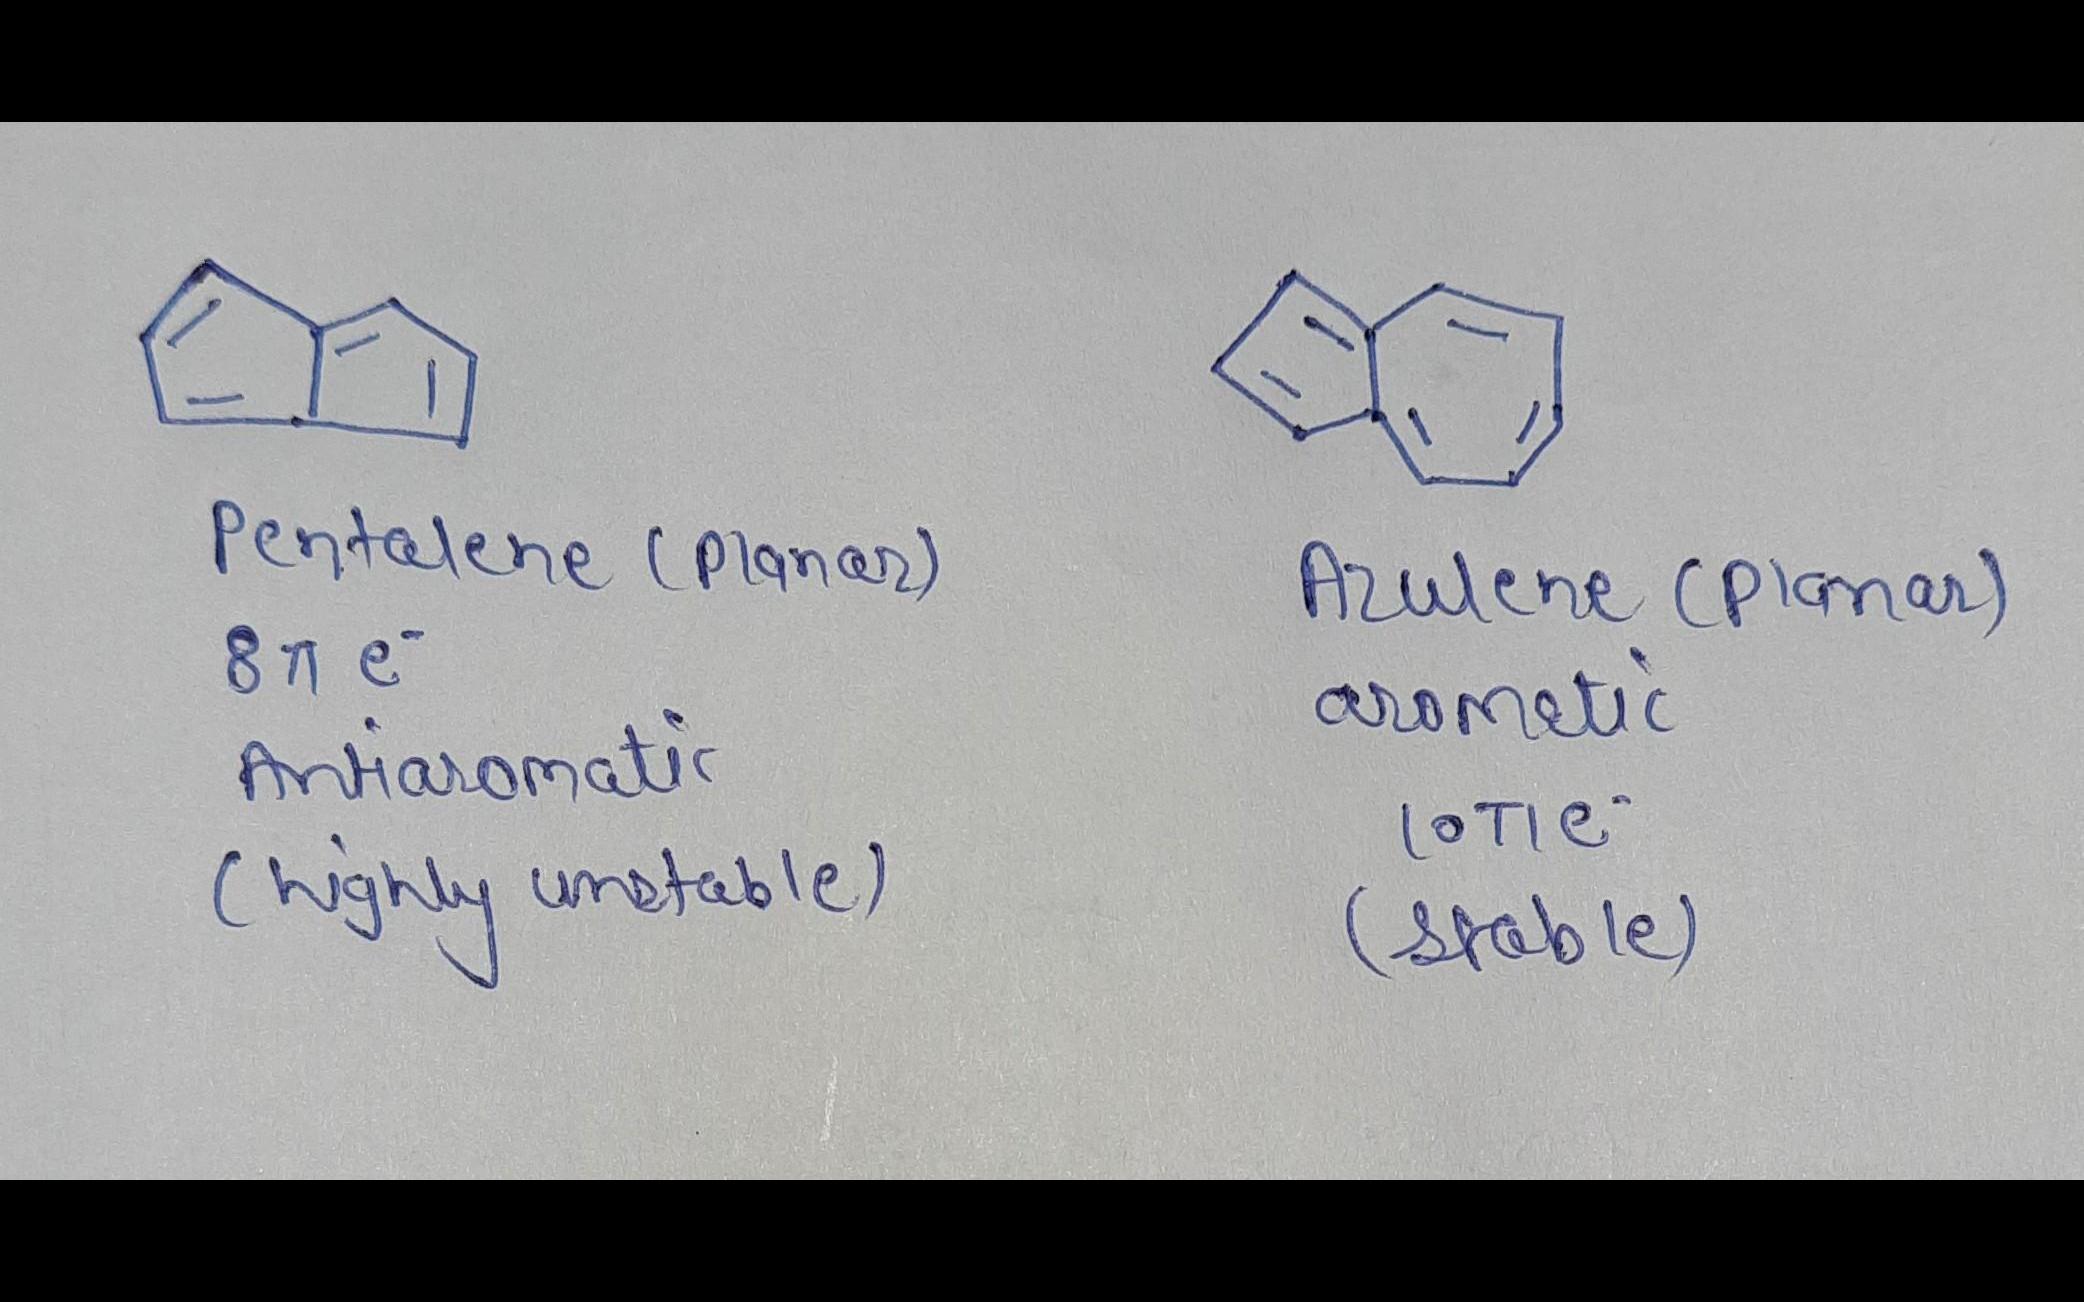 Pentalene (Planar)
8π e⁻
Antiaromatic
(highly unstable)
Azulene (Planar)
arometic
10π e⁻
(stable)